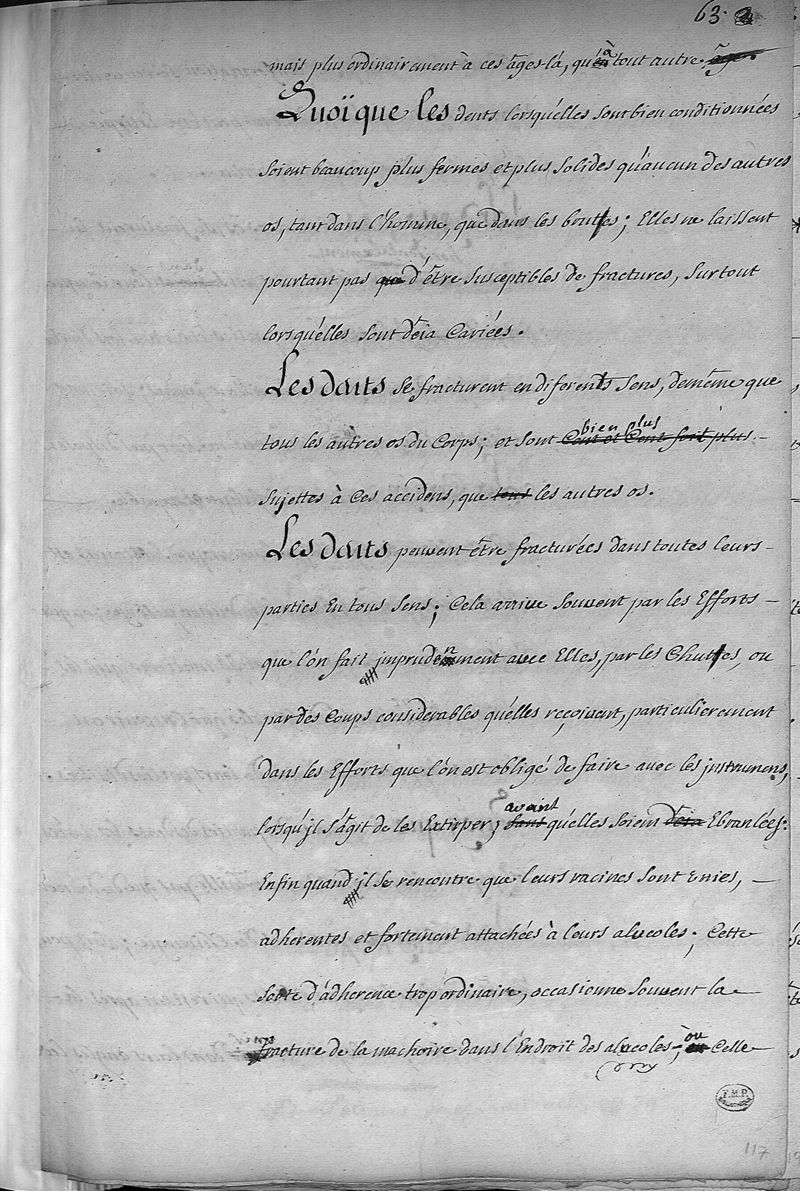 63.
mais plus ordinairement à ces âges là, qu'à tout autre. age.
Quoïque les dents lorsqu'elles sont bien conditionnées
soient beaucoup plus fermes et plus solides qu'aucun des autres
os, tant dans l'homme, que dans les brutes; Elles ne laissent
pourtant pas que d'être susceptibles de fractures, surtout
lorsqu'elles sont déia Cariées.
Les dents se fracturent en diferents sens, de même que
bien plus
tous les autres os du Corps; et sont Cent et Cent foit plus
sujettes à Ces accidens, que tous les autres os.
Les dents peuvent être fracturées dans toutes leurs
parties En tous sens; Cela arrive souvent par les Efforts
que l'on fait jmprudenment avec Elles, par les Chuttes, ou
par des Coups considerables qu'elles reçoivent, particulierement
dans les Efforts que l'on est obligé de faire avec les jnstrumens,
avant
lorsqu'jl s'agit de les Extirper; sans qu'elles soient déia Ebranlées:
Enfin quand jl se rencontre que leurs racines sont unies,
adherentes et fortement attachées à leurs alveoles; Cette
sorte d'adherence trop ordinaire, occasionne souvent la
ou
fracture de la machoire dans l'Endroit des alveoles; Celle
F.M.P.
117